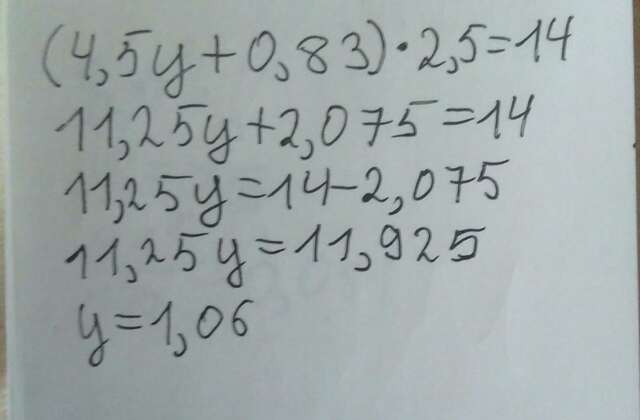 (4,5y+0,83)•2,5=14
11,25y+2,075=14
11,25y=14-2,075
11,25y=11,925
y=1,06